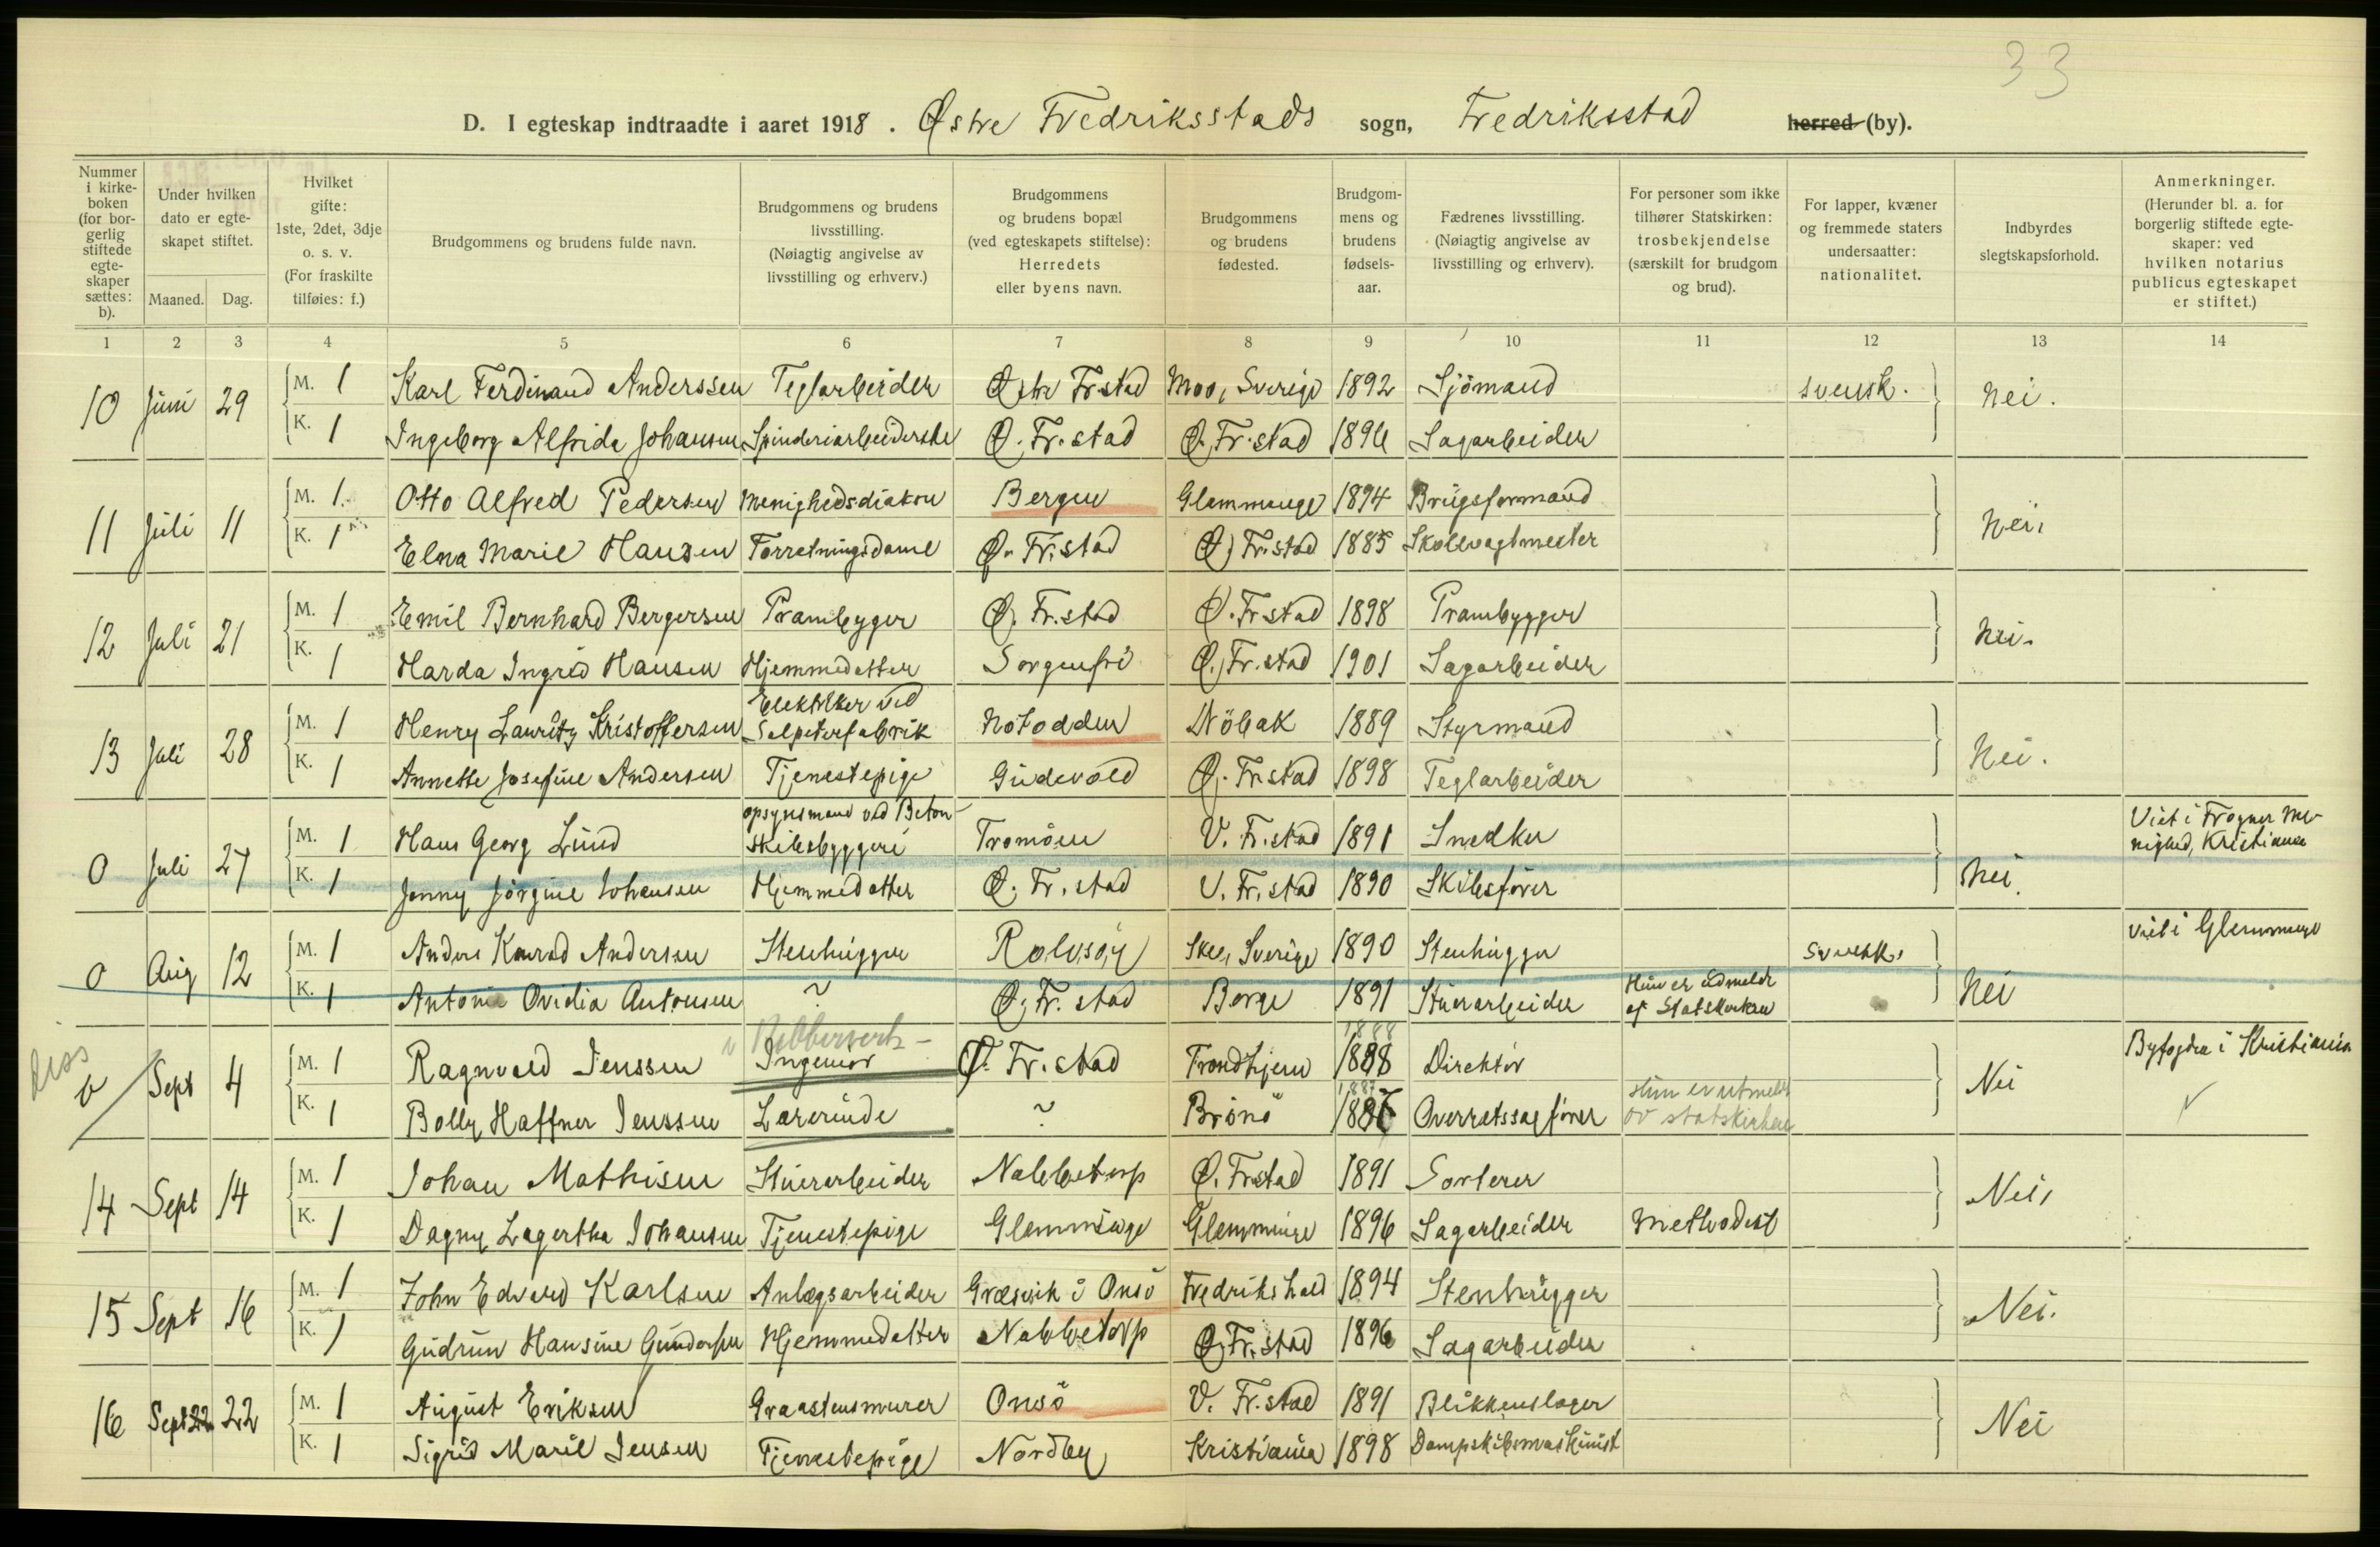 33
D. I egteskap indtraadte i aaret 1918. Østre Fredriksstads sogn, Fredriksstad herred (by).
Nummer i kirke-boken (for bor-gerlig stiftede egte-skaper sættes: b).
Under hvilken dato er egte-skapet stiftet.
Maaned. Dag.
Hvilket gifte: 1ste, 2det, 3dje o. s. v. (For fraskilte tilføies: f.)
Brudgommens og brudens fulde navn.
Brudgommens og brudens livsstilling. (Nøiagtig angivelse av livsstilling og erhverv.)
Brudgommens og brudens bopæl (ved egteskapets stiftelse): Herredets eller byens navn.
Brudgommens og brudens fødested.
Brudgom-mens og brudens fødsels-aar.
Fædrenes livsstilling. (Nøiagtig angivelse av livsstilling og erhverv).
For personer som ikke tilhører Statskirken: trosbekjendelse (særskilt for brudgom og brud).
For lapper, kvæner og fremmede staters undersaatter: nationalitet.
Indbyrdes slegtskapsforhold.
Anmerkninger. (Herunder bl. a. for borgerlig stiftede egte-skaper: ved hvilken notarius publicus egteskapet er stiftet.)
1 2 3 4 5 6 7 8 9 10 11 12 13 14
10 Juni 29 M. 1 Karl Ferdinand Anderssen Teglarbeider Østre Fr.stad Moo, Sverige 1892 Sjömand svensk. Nei.
K. 1 Ingeborg Alfrida Johansen Spinderiarbeiderske Ø. Fr.stad Ø. Fr.stad 1896 Sagarbeider
11 Juli 11 M. 1 Otto Alfred Pedersen Menighedsdiakon Bergen Glemminge 1894 Brugsformand Nei.
K. 1 Elna Marie Hansen Forretningsdame Ø. Fr.stad Ø. Fr.stad 1885 Skolevagtmester
12 Juli 21 M. 1 Emil Bernhard Bergersen Prambygger Ø. Fr.stad Ø. Fr.stad 1898 Prambygger Nei.
K. 1 Harda Ingrid Hansen Hjemmedatter Sorgenfri Ø. Fr.stad 1901 Sagarbeider
13 Juli 28 M. 1 Henry Lauritz Kristoffersen Elektriker ved Salpeterfabrik Notodden Dröbak 1889 Styrmand Nei.
K. 1 Annette Josefine Andersen Tjenestepige Gudevold Ø. Fr.stad 1898 Teglarbeider
0 Juli 27 M. 1 Hans Georg Lund opsynsmand ved Beton-skibsbyggeri Tromöen V. Fr.stad 1891 Snedker Nei. Viet i Frogner Me-nighed, Kristiania
K. 1 Jenny Jörgine Johansen Hjemmedatter Ø. Fr.stad V. Fr.stad 1890 Skibsförer
0 Aug 12 M. 1 Anders Konrad Andersen Stenhugger Rolvsöy Skee, Sverige 1890 Stenhugger svensk. Nei viet i Glemminge
K. 1 Antonie Ovidia Antonsen ~ Ø. Fr.stad Borge 1891 Stuerarbeider Hun er udmeldt af Statskirken
diss 0 Sept 4 M. 1 Ragnvald Jenssen Ingeniör Ø. Fr.stad Trondhjem 1888 1888 Direktör Nei Byfogden i Kristiania
K. 1 Bolly Haffner Jenssen Lærerinde ~ Brönö 1887 Overretssagförer Hun er utmeldt av statskirken
14 Sept 14 M. 1 Johan Mathisen Stuerarbeider Nabbetorp Ø. Fr.stad 1891 Sorterer Nei,
K. 1 Dagny Lagertha Johansen Tjenestepige Glemminge Glemminge 1896 Sagarbeider Methodist
15 Sept 16 M. 1 John Edvard Karlsen Anlægsarbeider Græsvik i Onsö Fredrikshald 1894 Stenhugger Nei.
K. 1 Gudrun Hansine Gundersen Hjemmedatter Nabbetorp Ø. Fr.stad 1896 Sagarbeider
16 Sept 22 22 M. 1 August Eriksen Graastensmurer Onsö V. Fr.stad 1891 Blikkenslager Nei
K. 1 Sigrid Marie Jensen Tjenestepige Nordby Kristiania 1898 Dampskibsmaskinist